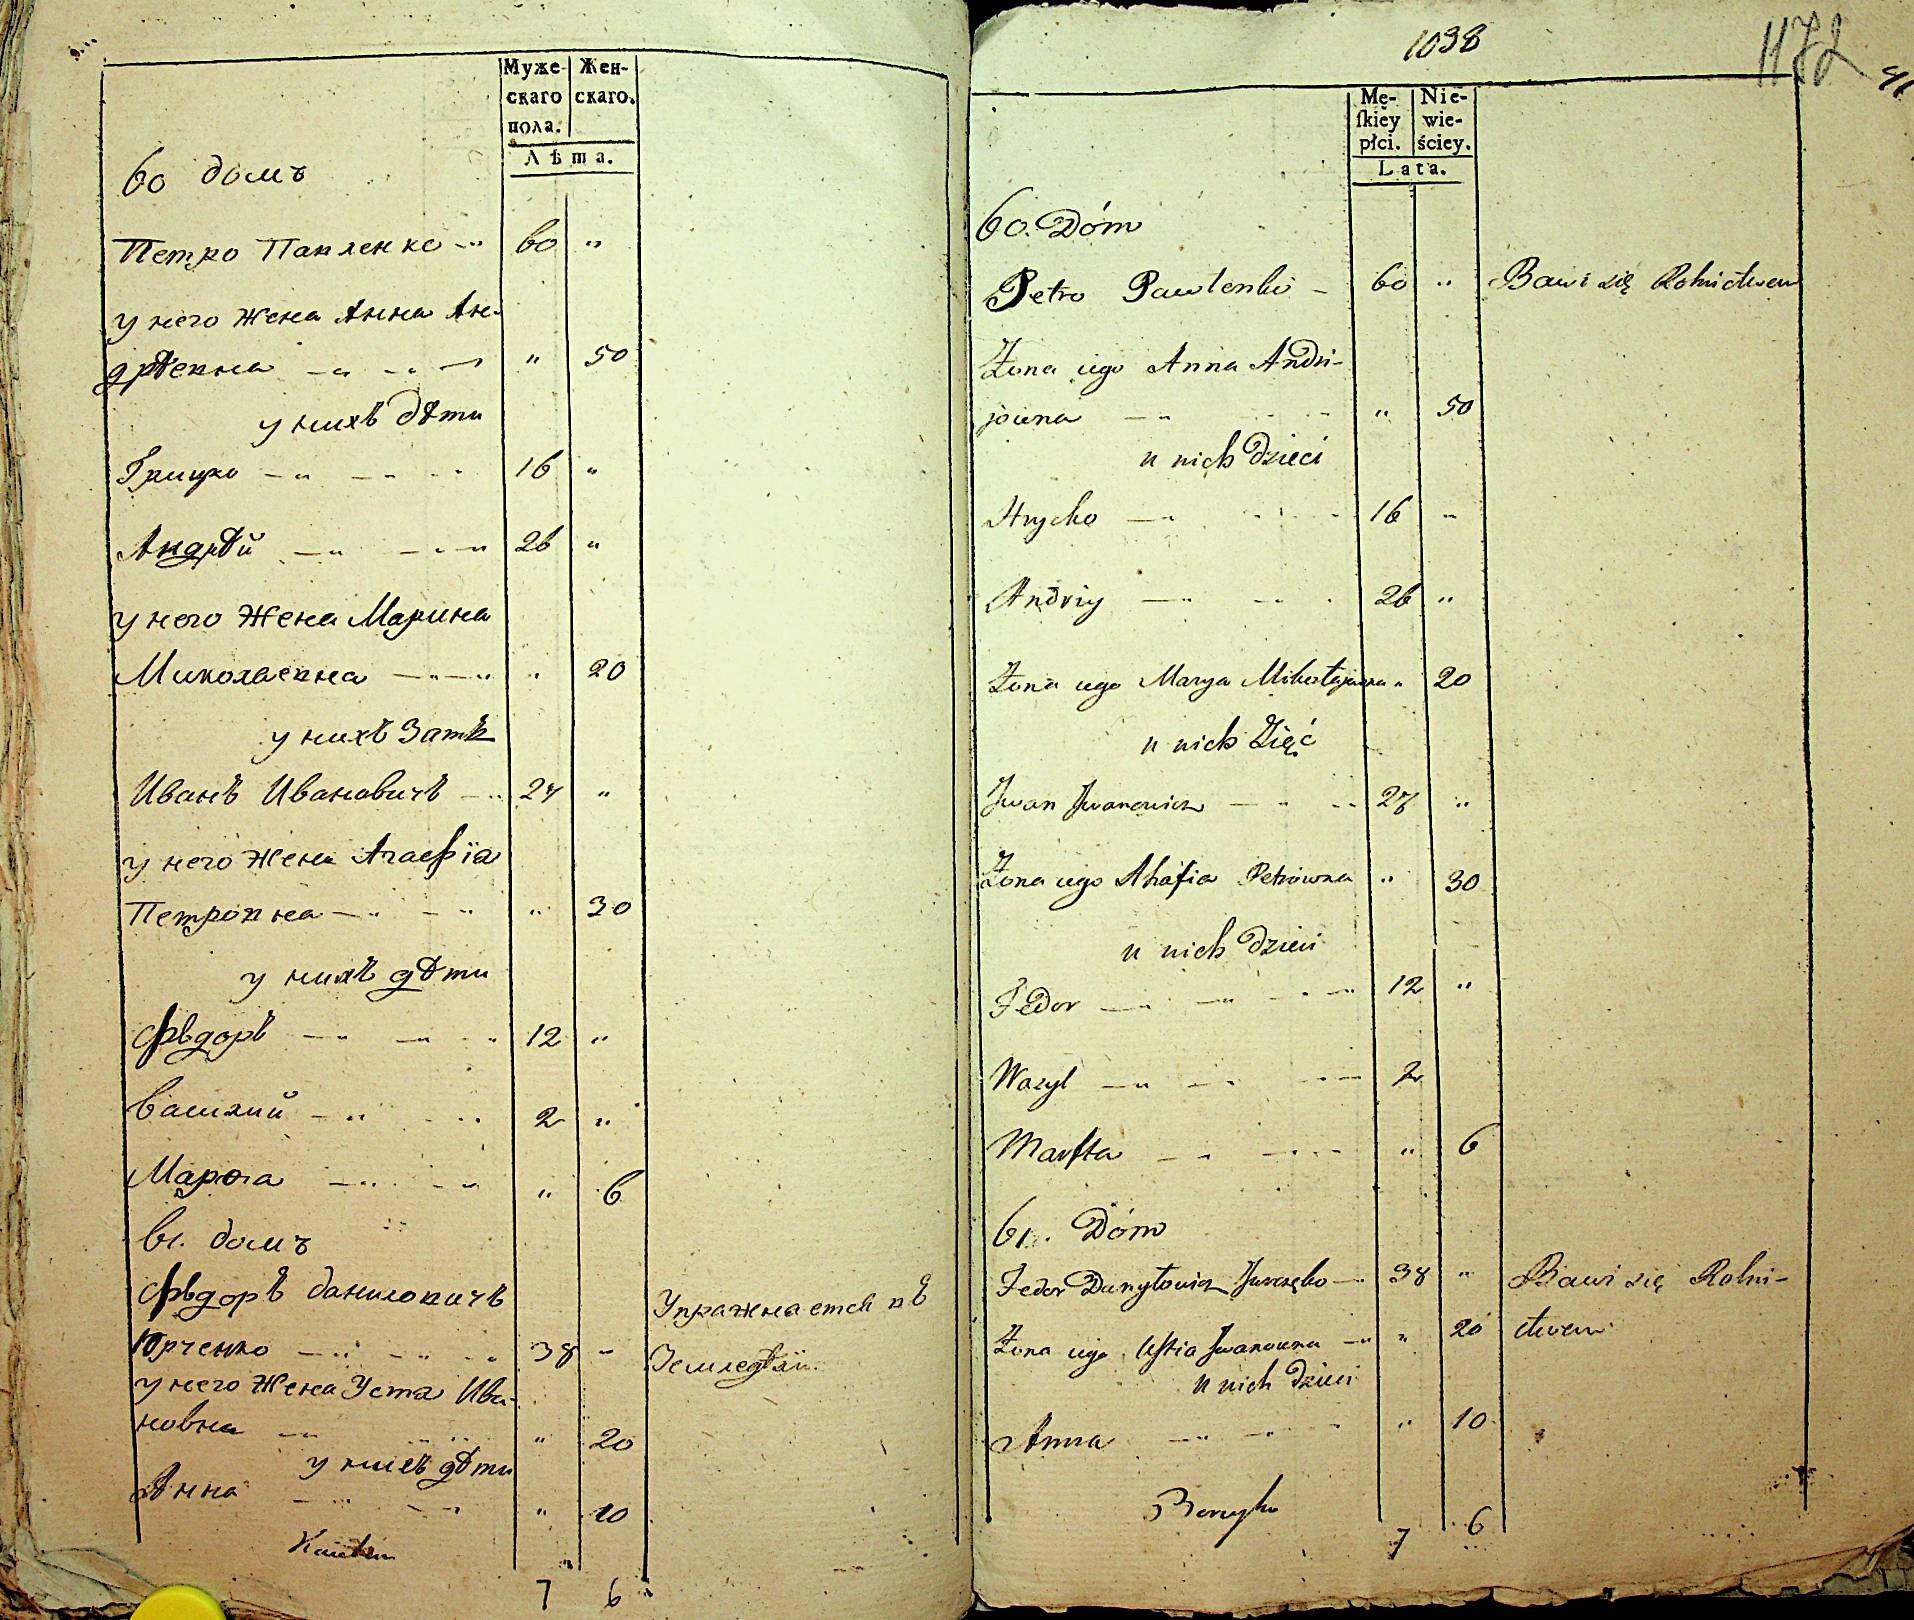 Муже-
скаго
пола.
Жен-
скаго.
Лѣта.
60 домъ
Петро Павленко 60 "
у него жена Анна Ан-
дрѣевна " 50
у нихъ дѣти
Грицко 16 "
Андрѣй 26 "
у него жена Марина
Миколаевна " 20
у нихъ Зать
Иванъ Ивановичъ 27 "
у него жена Агаефіа
Петровна " 30
у нихъ дѣти
Фѣдоръ 12 "
Василий 2 "
Марѳа " 6
61. домъ
Фѣдоръ даниловичъ Упражнается въ
Юрченко 38 " Земледѣлій
у него жена Уста Ива-
новна " 20
у нихъ дѣти
Анна " 10
7 6
1038
1172
Mę-
ſkiey
płci.
Nie-
wie-
ściey.
Lata.
60. Dóm
Petro Pawlenko 60 " Bawi się Rolnictwem
Żona iego Anna Andri-
jowna " 50
u nich Dzieci
Hrycko 16 "
Andriy 26 "
Żona iego Marya Mikołajowna " 20
u nich Zięć
Jwan Jwanowicz 27 "
Żona iego Ahafia Petrowna " 30
u nich Dzieci
Fedor 12 "
Wasyl 2
Marfta " 6
61. Dóm
Fedor Danyłowicz Jurczęko 38 " Bawi się Rolni-
Żona iego Ustia Jwanowna " 20 ctwem
u nich Dzieci
Anna " 10
7 6